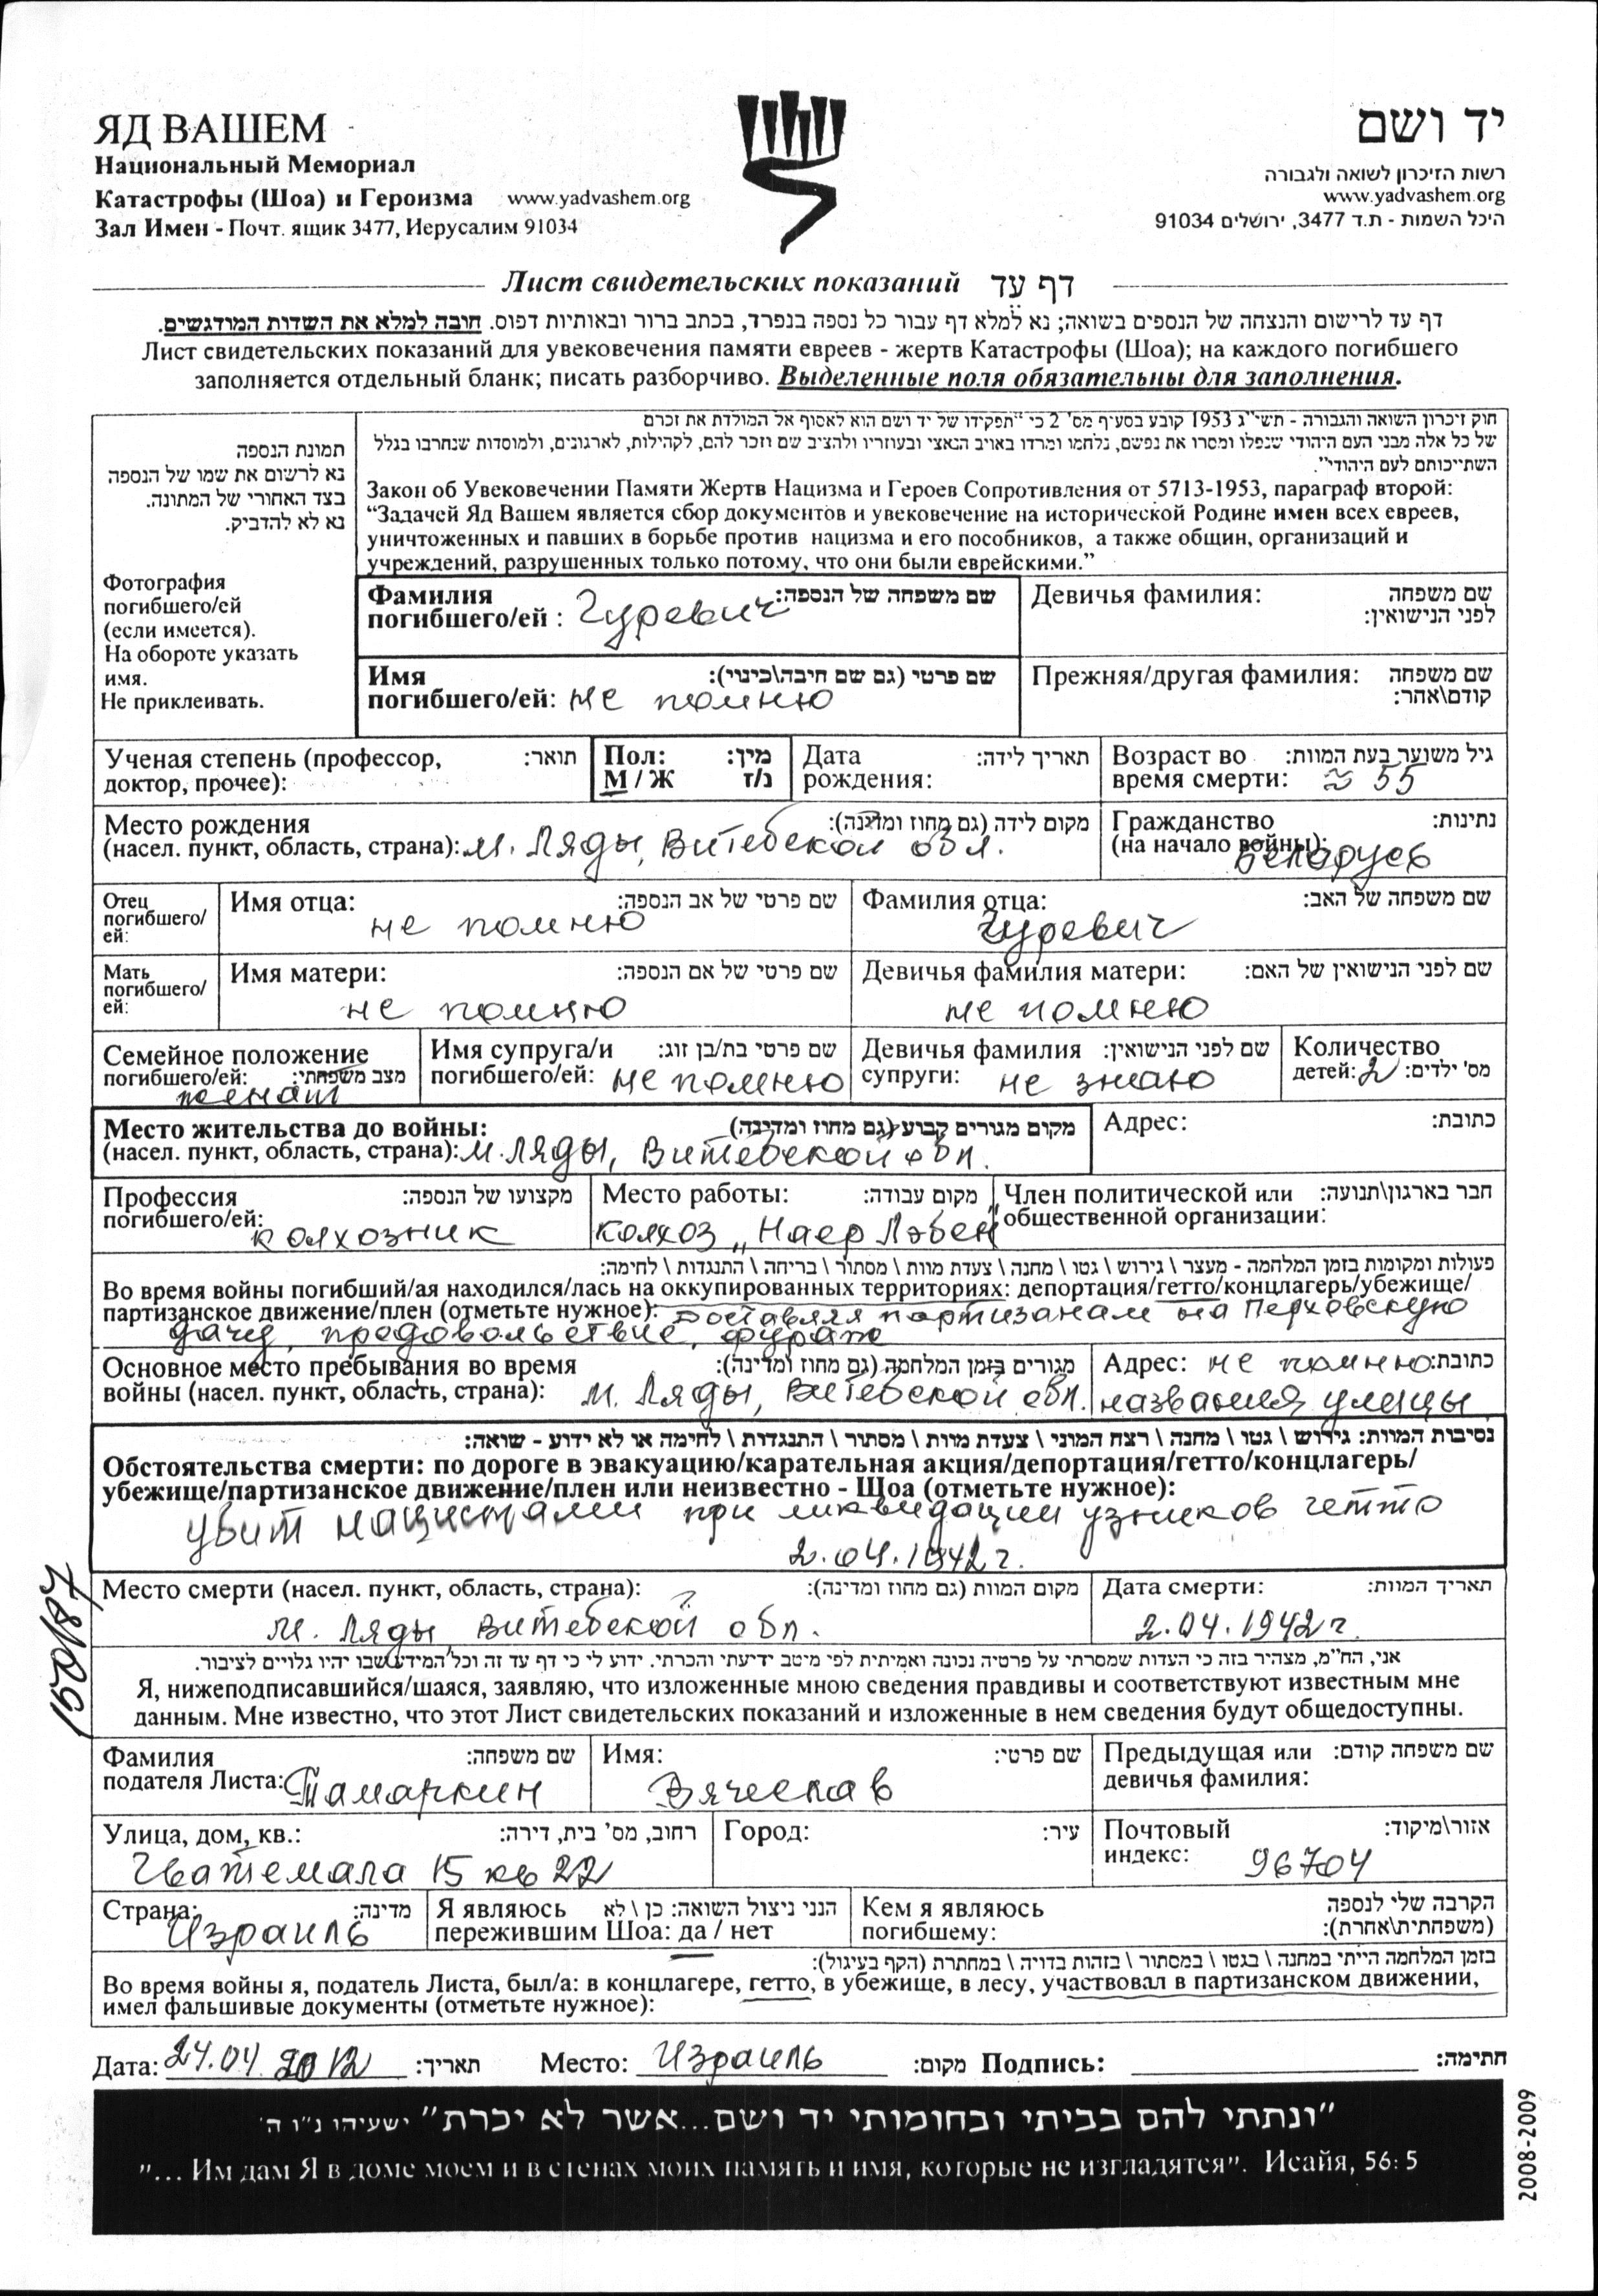 ЯД ВАШЕМ
Национальный Мемориал
Катастрофы (Шоа) и Героизма www.yadvashem.org
Зал Имен - Почт. ящик 3477, Иерусалим 91034
יד ושם
רשות הזיכרון לשואה ולגבורה
www.yadvashem.org
היכל השמות - ת.ד 3477, ירושלים 91034
Лист свидетельских показаний דף עד
דף עד לרישום והנצחה של הנספים בשואה; נא למלא דף עבור כל נספה בנפרד, בכתב ברור ובאותיות דפוס. חובה למלא את השדות המודגשים.
Лист свидетельских показаний для увековечения памяти евреев - жертв Катастрофы (Шоа); на каждого погибшего
заполняется отдельный бланк; писать разборчиво. Выделенные поля обязательны для заполнения.
תמונת הנספה
נא לרשום את שמו של הנספה
בצד האחורי של המתונה.
נא לא להדביק.
Фотография
погибшего/ей
(если имеется).
На обороте указать
имя.
Не приклеивать.
חוק זיכרון השואה והגבורה - תשי"ג 1953 קובע בסעיף מס' 2 כי "תפקידו של יד ושם הוא לאסוף אל המולדת את זכרם
של כל אלה מבני העם היהודי שנפלו ומסרו את נפשם, נלחמו ומרדו באויב הנאצי ובעוזריו ולהציב שם וזכר להם, לקהילות, לארגונים, ולמוסדות שנחרבו בגלל
השתייכותם לעם היהודי".
Закон об Увековечении Памяти Жертв Нацизма и Героев Сопротивления от 5713-1953, параграф второй:
“Задачей Яд Вашем является сбор документов и увековечение на исторической Родине имен всех евреев,
уничтоженных и павших в борьбе против нацизма и его пособников, а также общин, организаций и
учреждений, разрушенных только потому, что они были еврейскими.”
Фамилия שם משפחה של הנספה:
погибшего/ей : Гуревич
Девичья фамилия: שם משפחה
לפני הנישואין:
Имя שם פרטי (גם שם חיבה\כינוי):
погибшего/ей: не помню
Прежняя/другая фамилия: שם משפחה
קודם\אחר:
Ученая степень (профессор, תואר:
доктор, прочее):
Пол: מין:
М / Ж נ/ז
Дата תאריך לידה:
рождения:
Возраст во גיל משוער בעת המוות:
время смерти: ≈ 55
Место рождения מקום לידה (גם מחוז ומדינה):
(насел. пункт, область, страна): м. Ляды, Витебской обл.
Гражданство נתינות:
(на начало войны): Беларусь
Отец
погибшего/
ей:
Имя отца: שם פרטי של אב הנספה:
не помню
Фамилия отца: שם משפחה של האב:
Гуревич
Мать
погибшего/
ей:
Имя матери: שם פרטי של אם הנספה:
не помню
Девичья фамилия матери: שם לפני הנישואין של האם:
не помню
Семейное положение
погибшего/ей: מצב משפחתי:
женат
Имя супруга/и שם פרטי בת/בן זוג:
погибшего/ей: не помню
Девичья фамилия שם לפני הנישואין:
супруги: не знаю
Количество
детей: 2 מס' ילדים:
Место жительства до войны: מקום מגורים קבוע (גם מחוז ומדינה)
(насел. пункт, область, страна): м. Ляды, Витебской обл.
Адрес: כתובת:
Профессия מקצועו של הנספה:
погибшего/ей: колхозник
Место работы: מקום עבודה:
колхоз „Наер Лэбен"
Член политической или חבר בארגון\תנועה:
общественной организации:
פעולות ומקומות בזמן המלחמה - מעצר \ גירוש \ גטו \ מחנה \ צעדת מוות \ מסתור \ בריחה \ התנגדות \ לחימה:
Во время войны погибший/ая находился/лась на оккупированных территориях: депортация/гетто/концлагерь/убежище/
партизанское движение/плен (отметьте нужное): Доставлял партизанам на Перховскую
дачу, продовольствие, фураж
Основное место пребывания во время מגורים בזמן המלחמה (גם מחוז ומדינה):
войны (насел. пункт, область, страна): м. Ляды, Витебской обл.
Адрес: не помню כתובת:
названия улицы
נסיבות המוות: גירוש \ גטו \ מחנה \ רצח המוני \ צעדת מוות \ מסתור \ התנגדות \ לחימה או לא ידוע - שואה:
Обстоятельства смерти: по дороге в эвакуацию/карательная акция/депортация/гетто/концлагерь/
убежище/партизанское движение/плен или неизвестно - Шоа (отметьте нужное):
убит нацистами при ликвидации узников гетто
2.04.1942г.
Место смерти (насел. пункт, область, страна): מקום המוות (גם מחוז ומדינה):
м. Ляды Витебской обл.
Дата смерти: תאריך המוות:
2.04.1942г.
150/87
אני, הח"מ, מצהיר בזה כי העדות שמסרתי על פרטיה נכונה ואמיתית לפי מיטב ידיעתי והכרתי. ידוע לי כי דף עד זה וכל המידע שבו יהיו גלויים לציבור.
Я, нижеподписавшийся/шаяся, заявляю, что изложенные мною сведения правдивы и соответствуют известным мне
данным. Мне известно, что этот Лист свидетельских показаний и изложенные в нем сведения будут общедоступны.
Фамилия שם משפחה:
подателя Листа: Тамаркин
Имя: שם פרטי:
Вячеслав
Предыдущая или שם משפחה קודם:
девичья фамилия:
Улица, дом, кв.: רחוב, מס' בית, דירה:
Гватемала 15 кв 22
Город: עיר:
Почтовый אזור\מיקוד:
индекс: 96704
Страна: מדינה:
Израиль
Я являюсь הנני ניצול השואה: כן \ לא
пережившим Шоа: да / нет
Кем я являюсь הקרבה שלי לנספה
погибшему: (משפחתית\אחרת):
בזמן המלחמה הייתי במחנה \ בגטו \ במסתור \ בזהות בדויה \ במחתרת (הקף בעיגול):
Во время войны я, податель Листа, был/а: в концлагере, гетто, в убежище, в лесу, участвовал в партизанском движении,
имел фальшивые документы (отметьте нужное):
Дата: 24.04 2012 תאריך: Место: Израиль מקום: Подпись: חתימה:
"ונתתי להם בביתי ובחומותי יד ושם...אשר לא יכרת" ישעיהו נ"ו ה'
"... Им дам Я в доме моем и в стенах моих память и имя, которые не изгладятся". Исайя, 56: 5
2008-2009